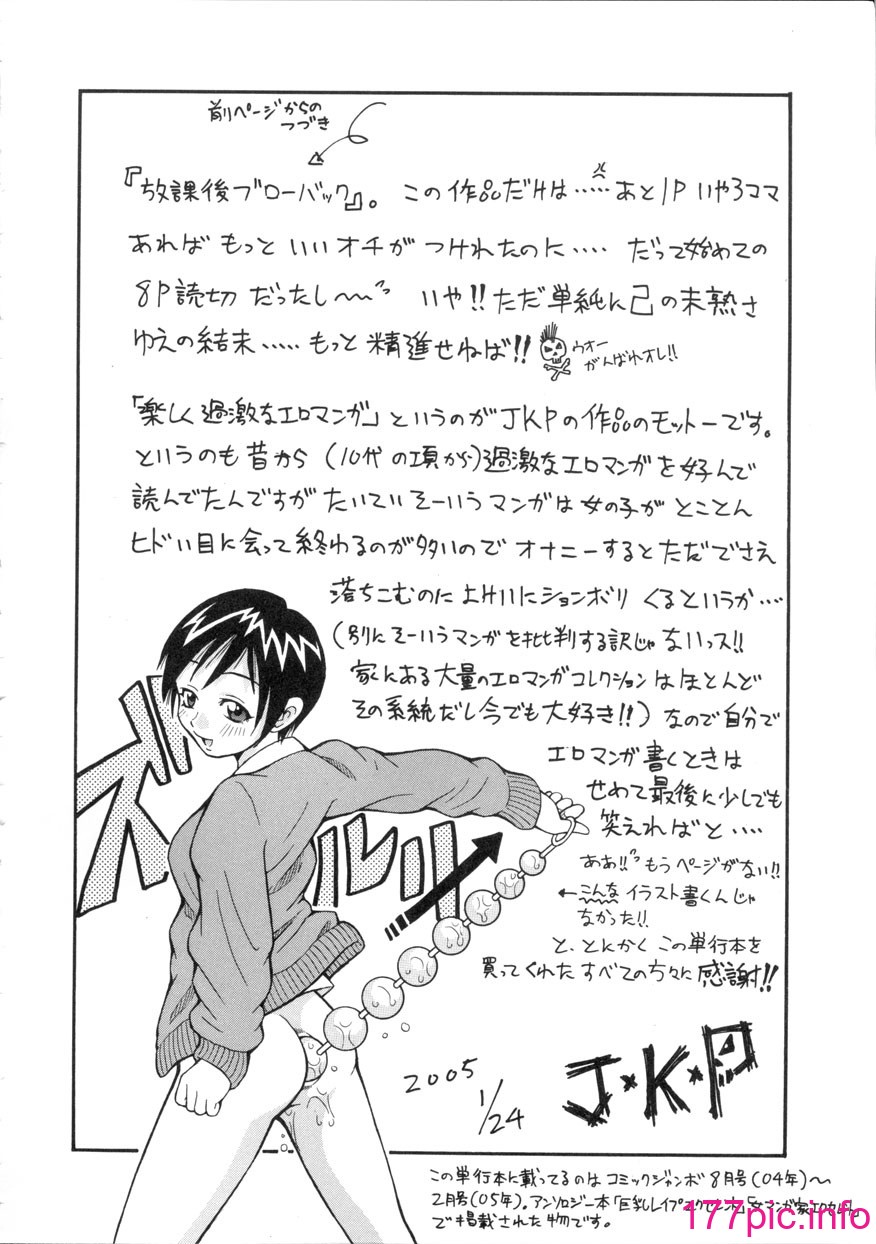 前ページからの
つづき
『放課後ブローバック』。この作品だけは……あと1Pいや3コマ
あればもっといいオチがつけれたのに‥‥だって始めての
8P読切だったし〜〜 いや!!ただ単純に己の未熟さ
ゆえの結末‥‥‥もっと精進せねば!!
ウオー
がんばれオレ!!
「楽しく過激なエロマンガ」というのがJKPの作品のモットーです。
というのも昔から(10代の項から)過激なエロマンガを好んで
読んでたんですがたいていそーいうマンガは女の子がとことん
ヒドい目に会って終わるのが多いのでオナニーするとただでさえ
落ちこむのによけいにションボリくるというか‥‥
(別にそーいうマンガを批判する訳じゃないっス!!
家にある大量のエロマンガコレクションはほとんど
その系統だし今でも大好き!!)なので自分で
エロマンガ書くときは
せめて最後に少しでも
笑えればと‥‥
ああ!!もうページがない!!
←こんなイラスト書くんじゃ
なかった!!
と、とんかくこの単行本を
買ってくれたすべての方々に感謝!!
ズルルリ
2005
1/24
J★K★P
この単行本に載ってるのはコミックジャンボ8月号(04年)〜
2月号(05年)。アンソロジー本「巨乳レイプ
で掲載された物です。
177pic.info